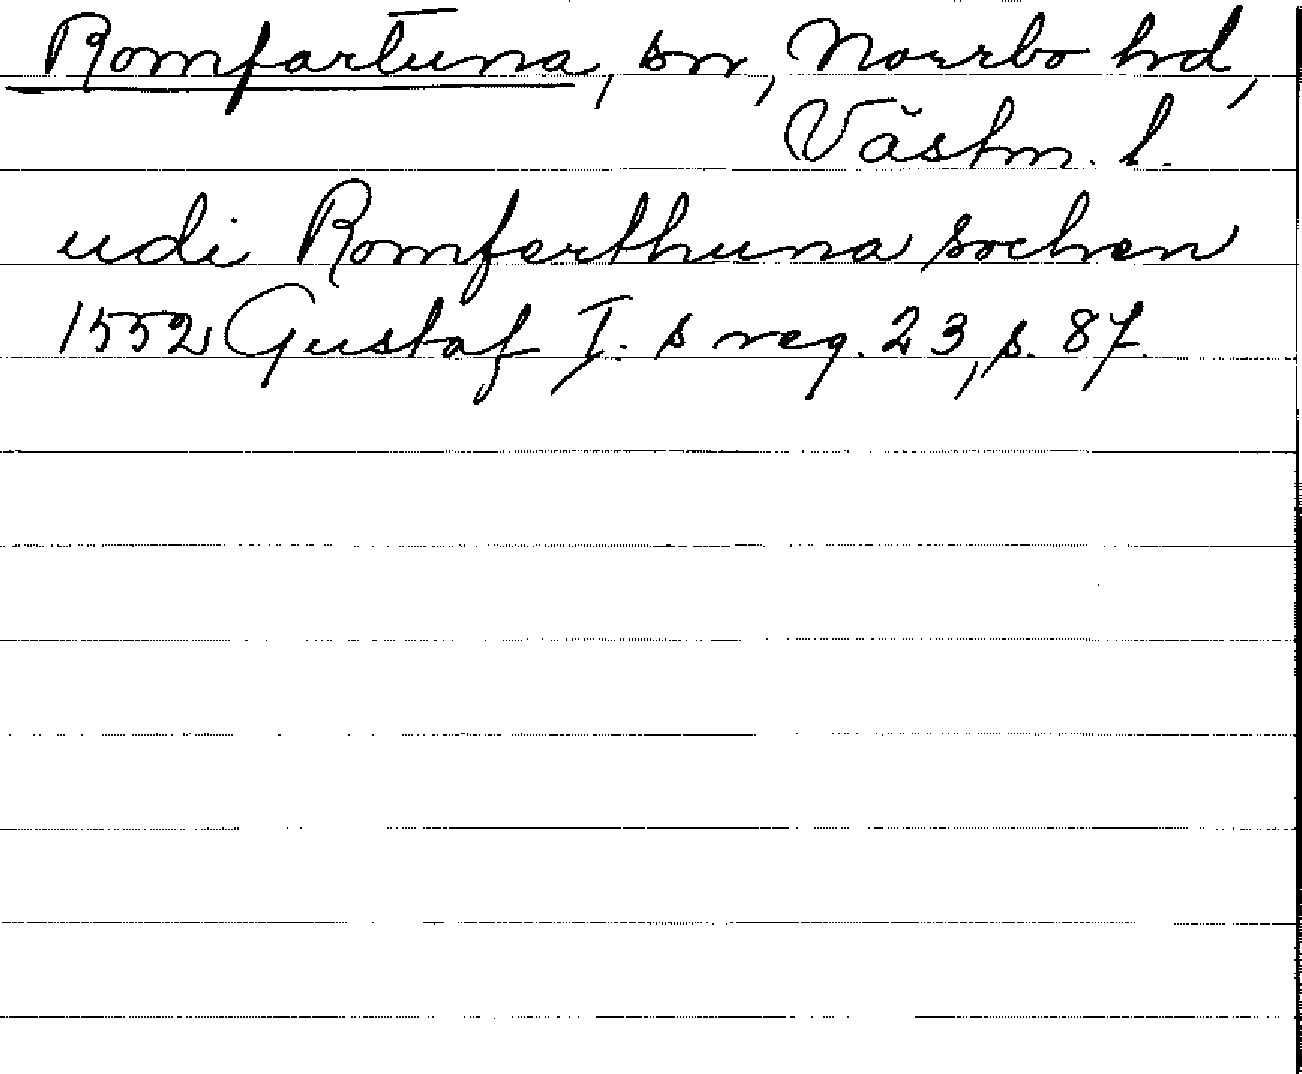 Romfartuna, sn, Norrbo hd,
Västm. l.
udi Romferthuna sochen
1552 Gustaf I. s reg. 23, s. 87.